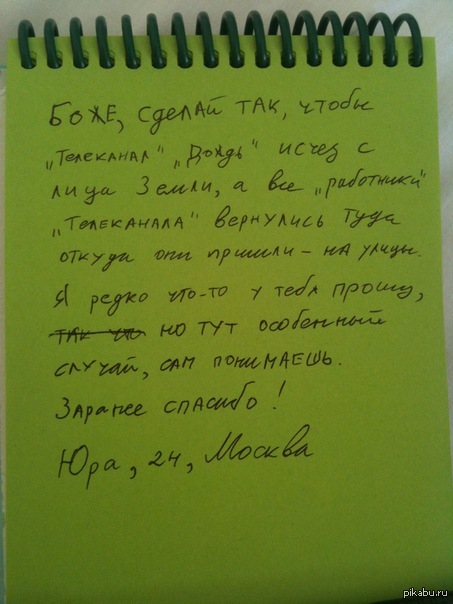 Боже, сделай так, чтобы
„Телеканал" „Дождь" исчез с
лица Земли, а все „работники"
„Телеканала" вернулись туда
откуда они пришли – на улицы.
Я редко что-то у тебя прошу,
так что но тут особенный
случай, сам понимаешь.
Заранее спасибо!
Юра, 24, Москва
pikabu.ru